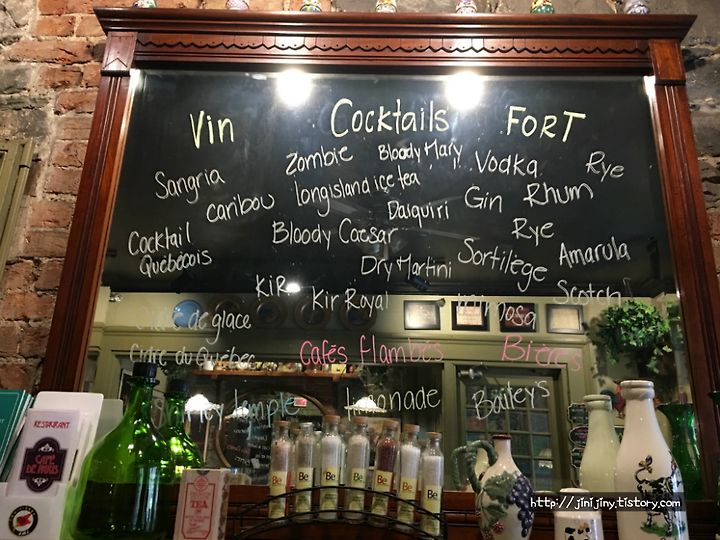 Vin Cocktails FORT
Zombie Bloody Mary Vodka Rye
Sangria longisland içe tea Gin Rhum
caribou Daiquiri Rye
Cocktail Québécois Bloody Caesar Sortilège Amarula
Dry Martini
KiR Kir Royal mimosa Scotch
Cidre de glace
Cidre du Québec Cafés flambés Bières
temple limonade Bailey's
RESTAURANT
CAFE DE PARIS
TEA
Be Be Be Be Be Be
http://jinijiny.tistory.com